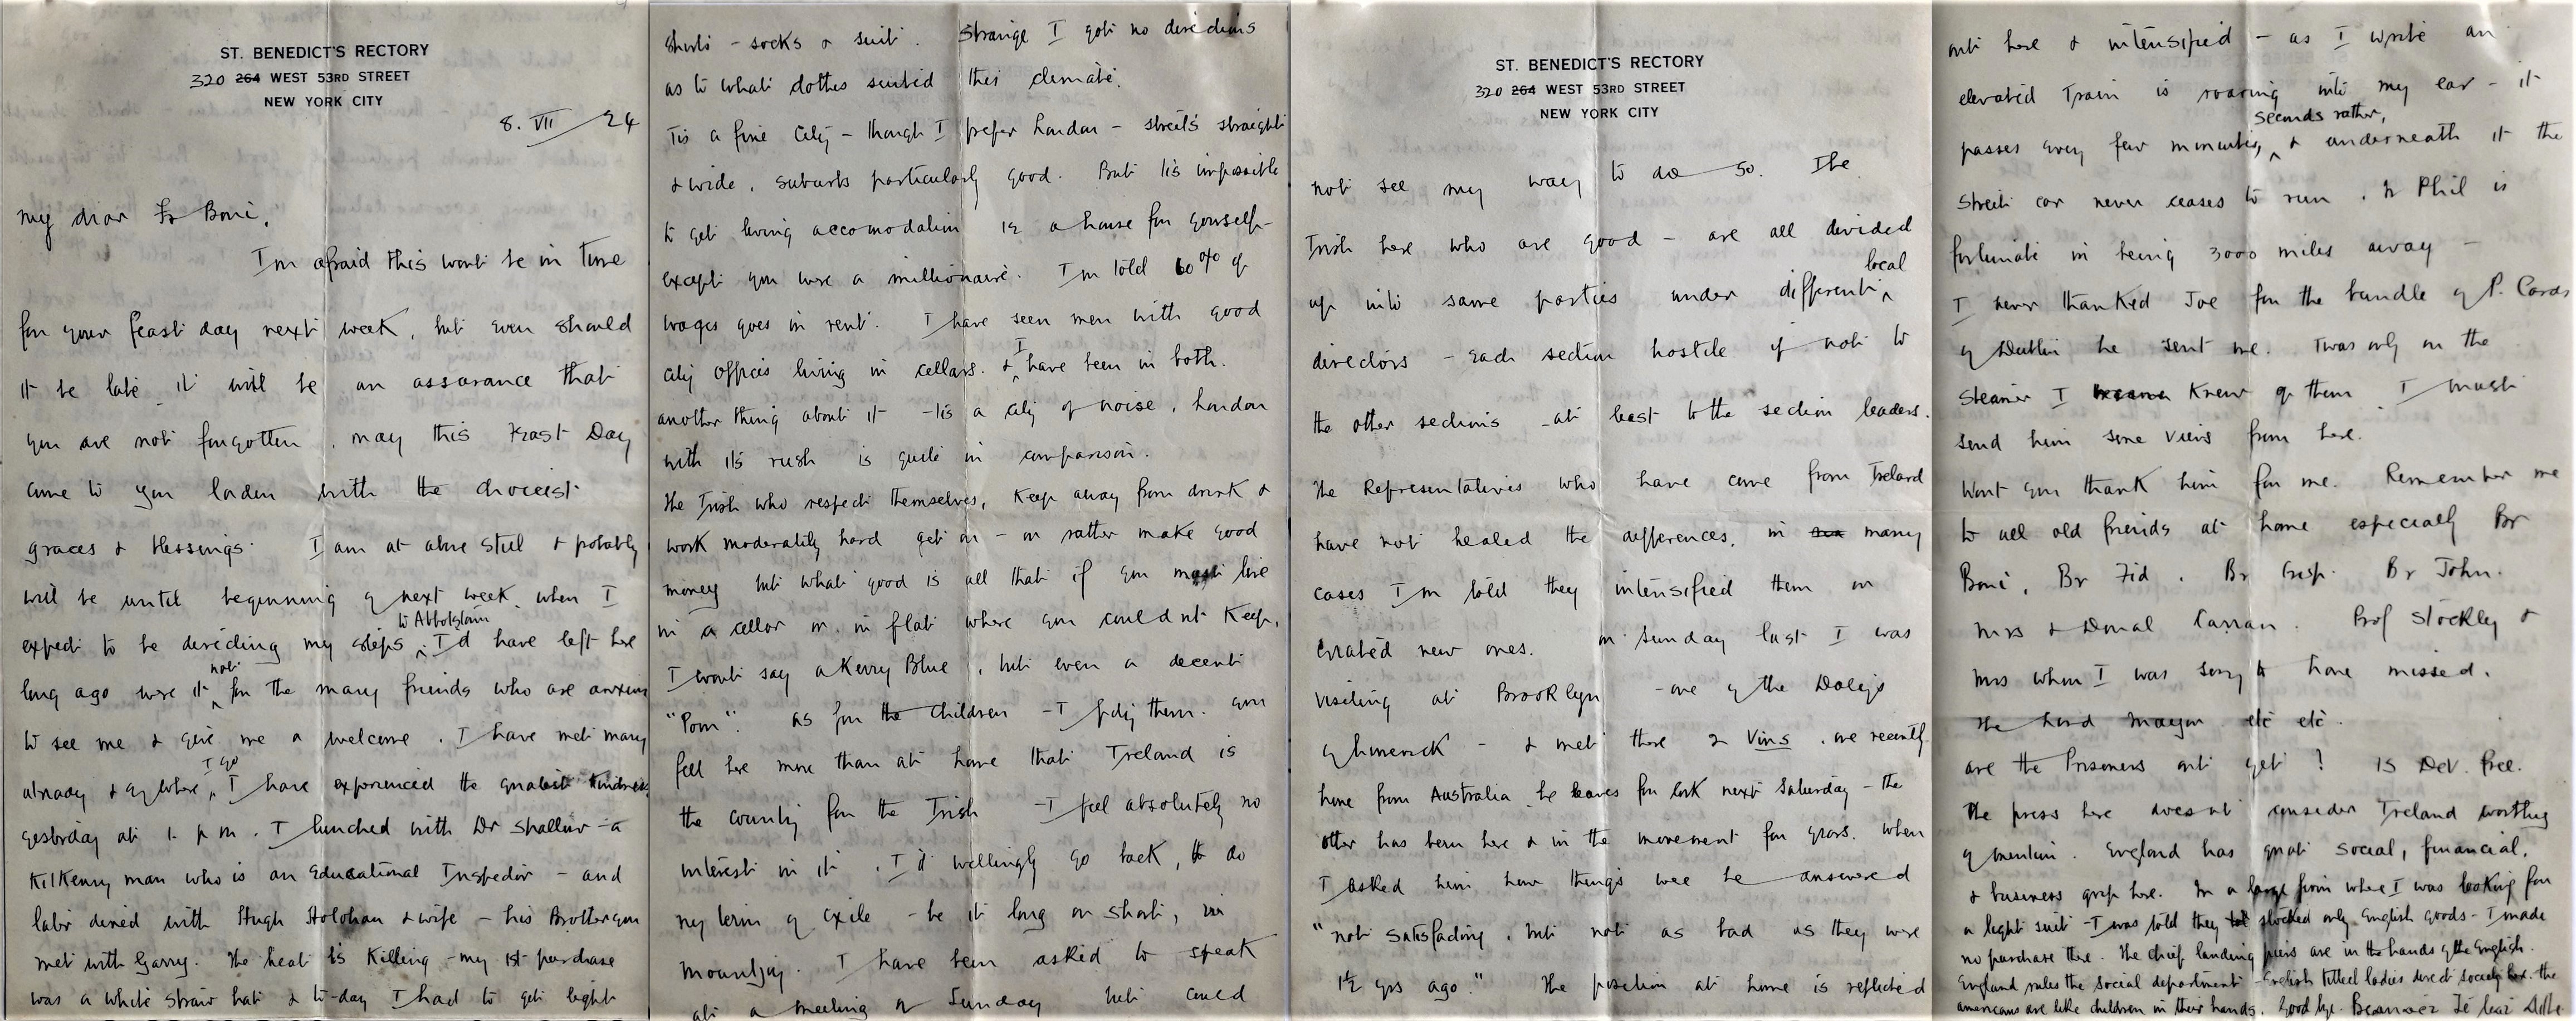 ST. BENEDICT'S RECTORY
320 264 WEST 53RD STREET
NEW YORK CITY
8. VII 24
My dear Fr Boni,
I'm afraid this wont be in time
for your feast day next week, but even should
it be late it will be an assurance that
you are not forgotten. May this Feast Day
come to you laden with the choicest
graces & blessings. I am at above still & probably
will be until beginning of next week when I
to Abbotstown
expect to be directing my steps I'd have left here
not
long ago were it for the many friends who are anxious
to see me & give me a welcome. I have met many
I go
already & eywhere, I have experienced the greatest kindness
yesterday at 1. p m. I lunched with Dr Shallow - a
Kilkenny man who is an Educational Inspector - and
later dined with Hugh Holohan & wife - his Brother you
met with Garry. The heat is killing - my 1st purchase
was a white straw hat & to-day I had to get light
shirts - socks & suit. Strange I got no directions
as to what clothes suited this climate.
Tis a fine City - though I prefer London - streets straight
& wide, suburbs particularly good. But tis impossible
to get living accomodation ie a house for yourself -
except you were a millionaire. I'm told 60% of
wages goes in rent. I have seen men with good
I
city offices living in cellars. & have been in both.
another thing about it - tis a city of noise, London
with its rush is quite in comparison.
The Irish who respect themselves, keep away from drink &
work moderately hard get on - or rather make good
money but what good is all that if you must live
in a cellar or in flat where you couldnt keep,
I wont say a Kerry Blue, but even a decent
"Pom". As for the children - I pity them. You
feel here more than at home that Ireland is
the country for the Irish - I feel absolutely no
interest in it. I'd willingly go back, to do
my term of exile - be it long or short, in
Mountjoy. I have been asked to speak
at a meeting on Sunday but could
ST. BENEDICT'S RECTORY
320 264 WEST 53RD STREET
NEW YORK CITY
not see my way to do so. The
Irish here who are good - are all divided
local
up into some parties under different
directors - each section hostile if not to
the other sections - at least to the section leaders.
The Representatives who have come from Ireland
have not healed the differences, in many
cases I'm told they intensified them or
created new ones. On Sunday last I was
visiting at Brooklyn - one of the Dalys
of Limerick - & met there 2 Vins. one recently
here from Australia he leaves for Cork next Saturday - the
other has been here & in the movement for years. When
I asked him how things were he answered
"not satisfactory, but not as bad as they were
1½ yrs ago." The position at home is reflected
out here & intensified - as I write an
elevated train is roaring into my ear - it
seconds rather,
passes every few minutes, & underneath it the
street car never ceases to run. Fr Phil is
fortunate in being 3000 miles away -
I never thanked Joe for the bundle of P. Cards
of Dublin he sent me. Twas only on the
steamer I knew of them. I must
send him some views from here.
Wont you thank him for me. Remember me
to all old friends at home especially Br
Boni, Br Fid. Br Crisp. Br John.
Mrs & Donal Carran. Prof Stockley &
Mrs whom I was sorry to have missed.
The Lord Mayor etc etc.
Are the Prisoners out yet? Is Dev. free.
The press here doesnt consider Ireland worthy
of mention. England has great social, financial,
& business grip here. In a large firm where I was looking for
a light suit - I was told they stocked only English goods - I made
no purchase there. The chief landing piers are in the hands of the English.
England rules the social department - English titled ladies direct society here. The
americans are like children in their hands. Good bye.